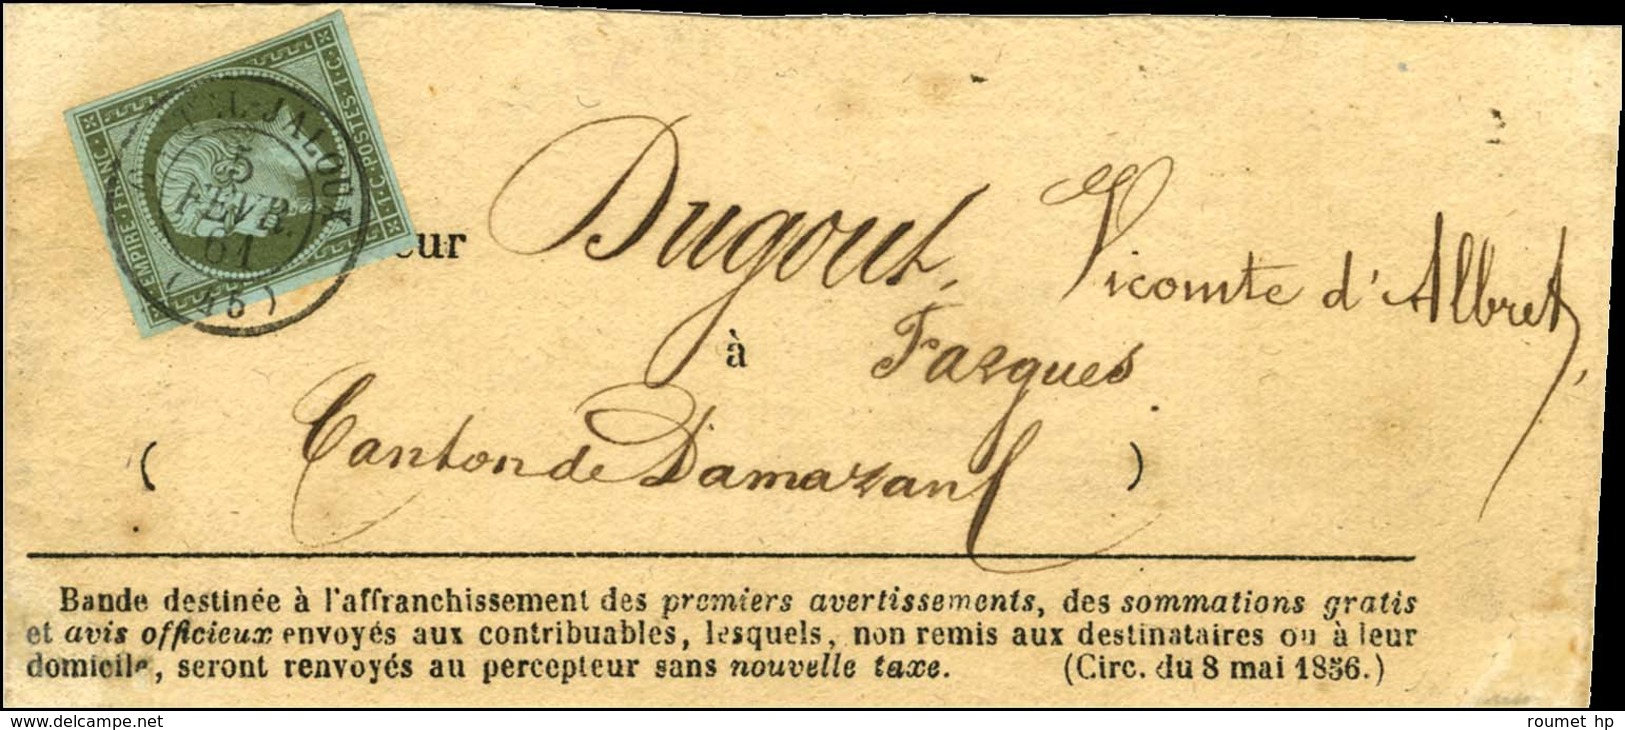 EMPIRE · FRANC · 1 · C · POSTES · 1 · C ·
JALOUX
5
FEVR.
61
(45)
eur Dugout, Vicomte d'Albret,
à Fargues
( Canton de Damazan )
Bande destinée à l'affranchissement des premiers avertissements, des sommations gratis
et avis officieux envoyés aux contribuables, lesquels, non remis aux destinataires ou à leur
domicile, seront renvoyés au percepteur sans nouvelle taxe. (Circ. du 8 mai 1856.)
www.delcampe.net
roumet hp